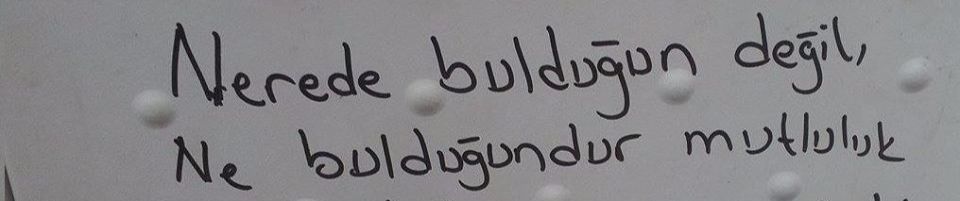 Nerede bulduğun değil,
Ne bulduğundur mutluluk